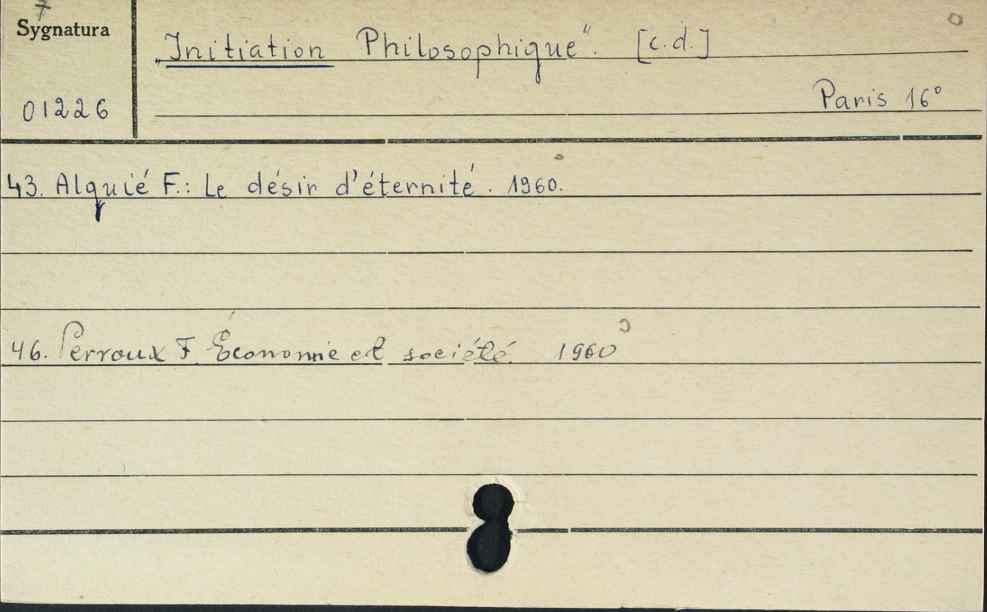 7
Sygnatura
„Initiation Philosophique". [c.d.]
01226
Paris 16°
43. Alquié F.: Le désir d'éternité. 1960.
46. Perroux F. Économie et société 1960